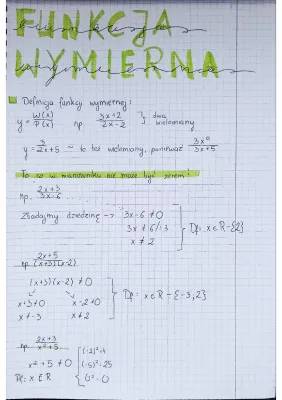 FUNKCJA
WYMIERNA
Definicja funkcji wymiernej:
y = W(x)/P(x) np 3x+2/2x-2 } dwa wielomiany
y = 3/2x+5 ~ to też wielomiany, ponieważ 3x⁰/3x+5
To co w mianowniku nie może być zerem!
np. 2x+3/3x-6
Zbadajmy dziedzinę → 3x-6 ≠ 0
3x ≠ 6 /:3
x ≠ 2
Df: x∈R-{2}
np 2x+5/(x+3)(x-2)
(x+3)(x-2) ≠ 0
x+3≠0 x-2≠0
x≠-3 x≠2
Df: x∈R-{-3,2}
np 2x+3/x²+5
x²+5 ≠ 0
Df: x∈R
(-2)²=4
(-5)²=25
0²=0